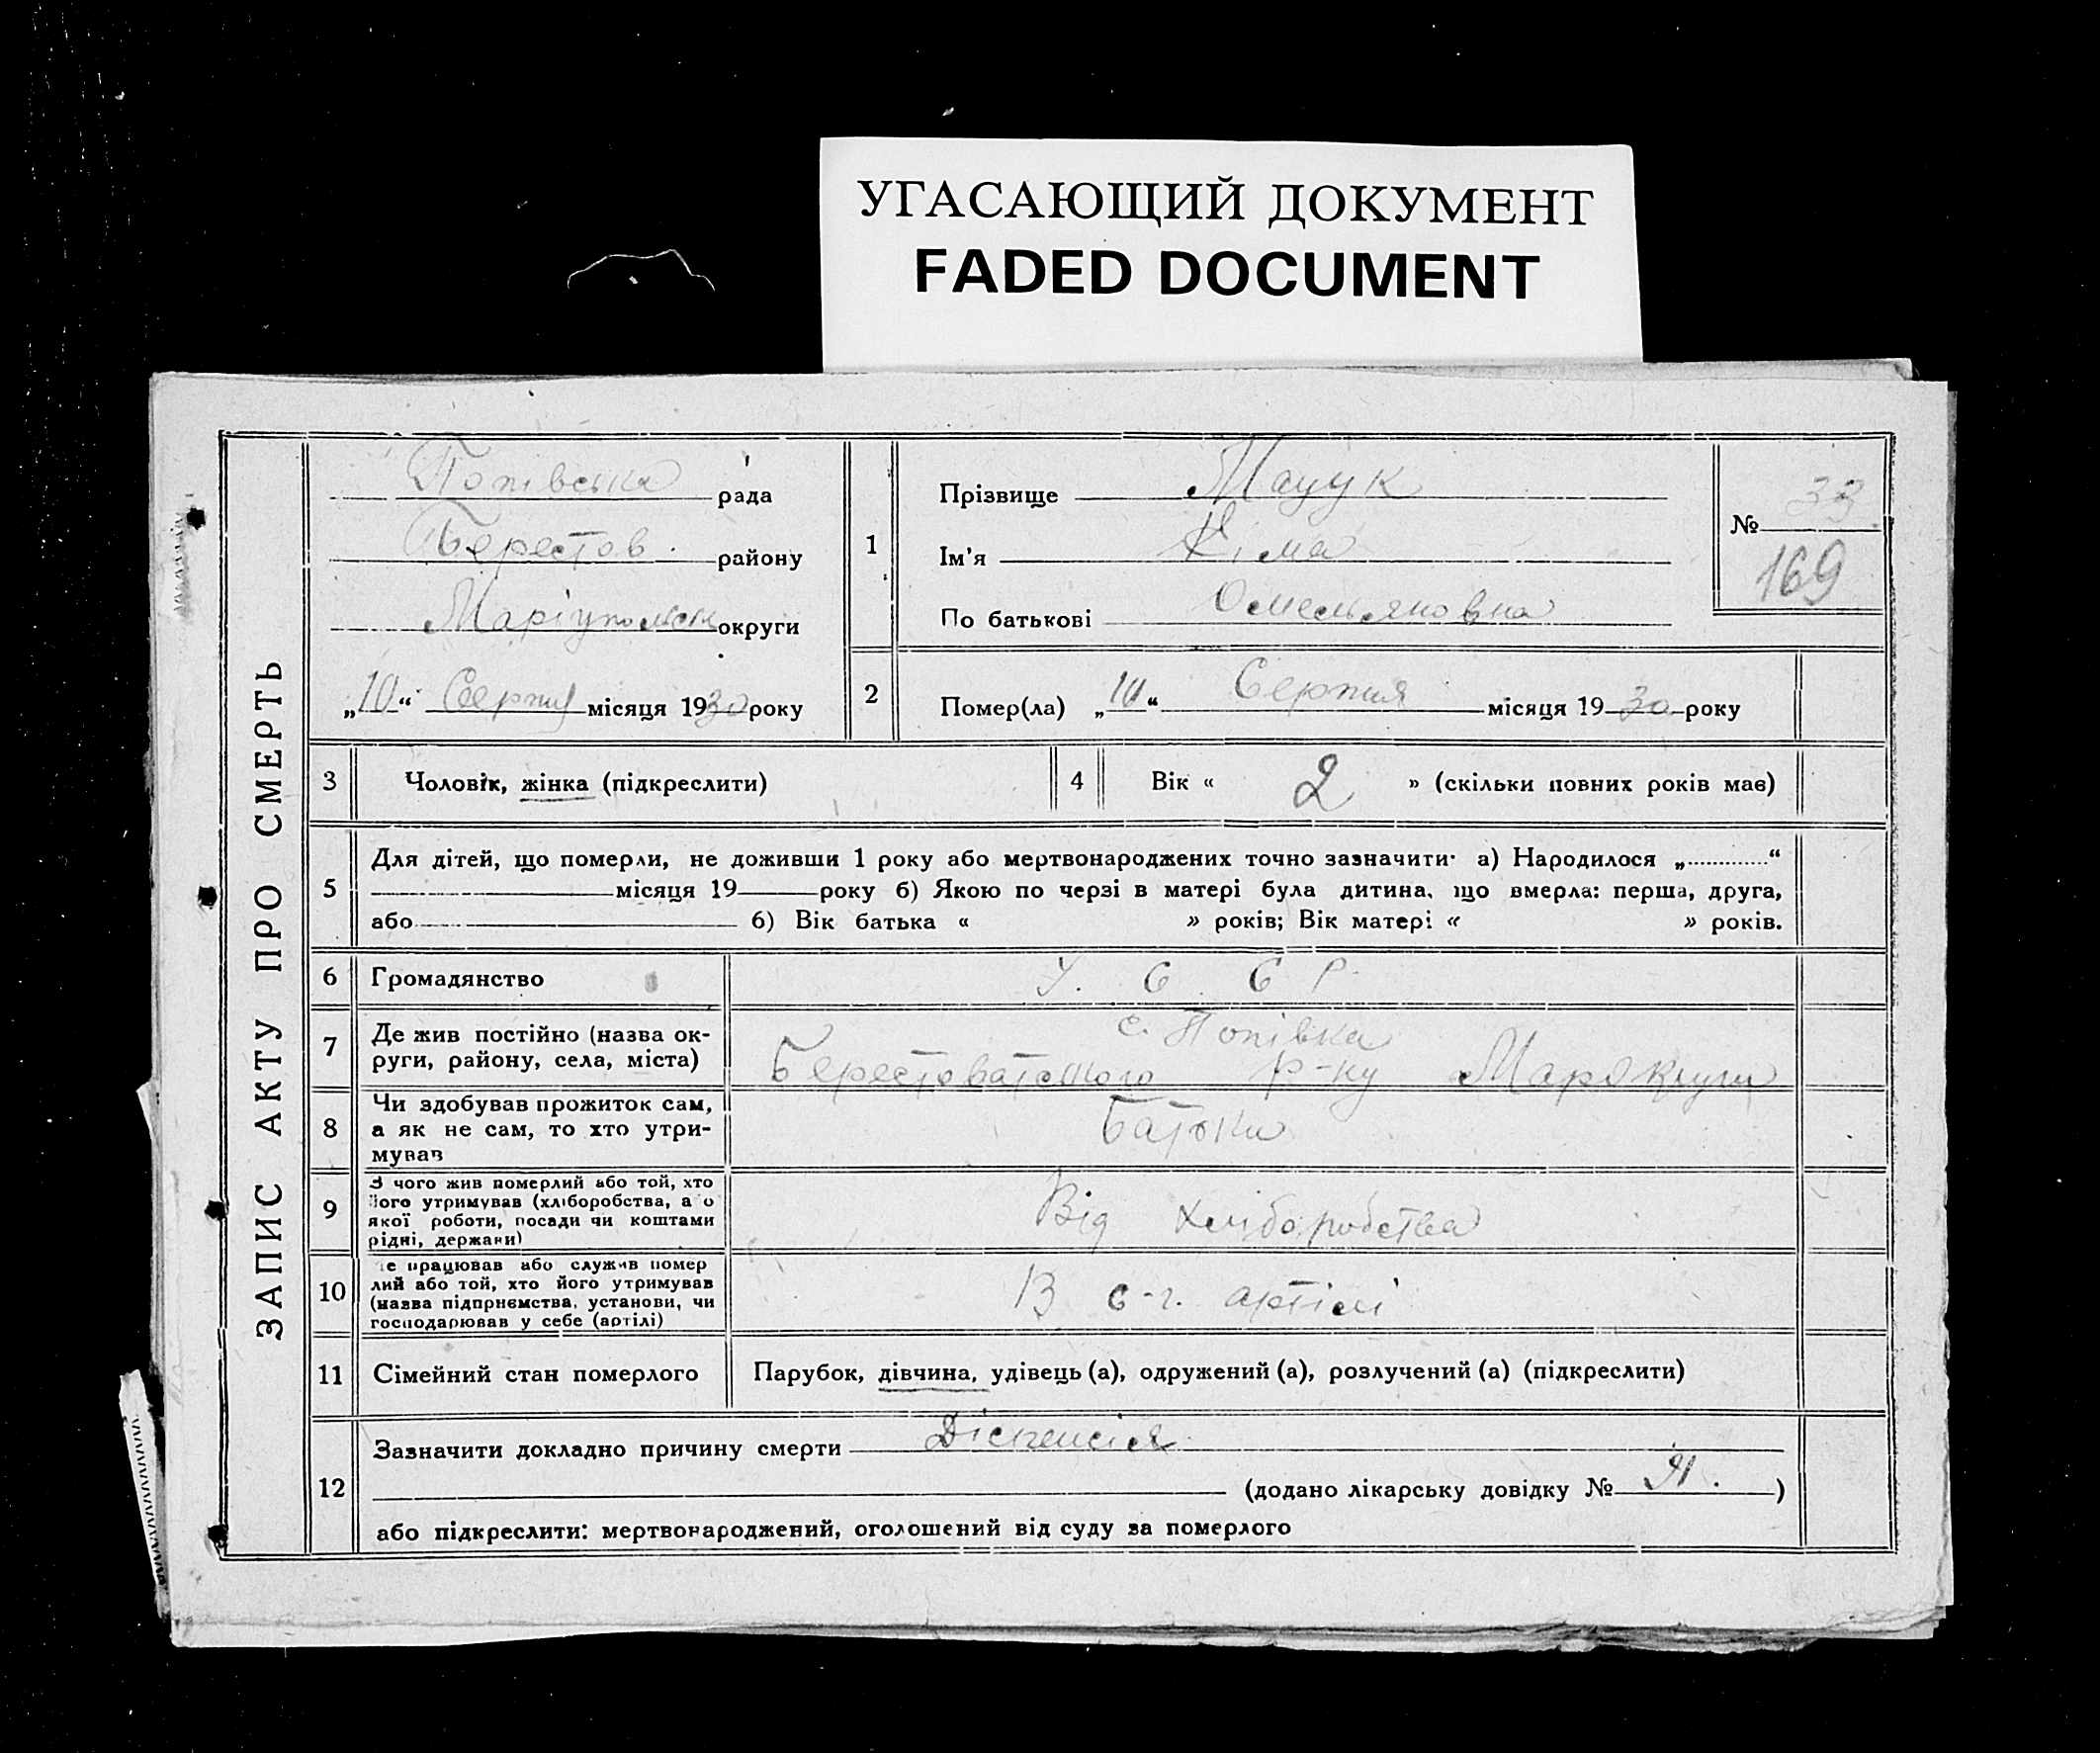 УГАСАЮЩИЙ ДОКУМЕНТ
FADED DOCUMENT
ЗАПИС АКТУ ПРО СМЕРТЬ
Попівська рада
Берестов. району
Маріупольськ округи
„10“ Серпня місяця 1930 року
1
Прізвище Мацук
Ім'я Кіма
По батькові Омельяновна
№ 33
169
2
Помер(ла) „10“ Серпня місяця 1930 року
3 Чоловік, жінка (підкреслити)
4 Вік « 2 » (скільки повних років має)
5
Для дітей, що померли, не доживши 1 року або мертвонароджених точно зазначити· а) Народилося „ “
місяця 19 року б) Якою по черзі в матері була дитина, що вмерла: перша, друга,
або 6) Вік батька « » років; Вік матері « » років.
6 Громадянство У. С. С Р.
7
Де жив постійно (назва ок-
руги, району, села, міста)
с. Попівка
Берестоватського р-ну
8
Чи здобував прожиток сам,
а як не сам, то хто утри-
мував
Батьки
9
З чого жив померлий або той, хто
його утримував (хліборобства, а о
якої роботи, посади чи коштами
рідні, держави)
Від хліборобства
10
е працював або служив помер
лий або той, хто його утримував
(назва підприємства, установи, чи
господарював у себе (артілі)
В с-г. артілі
11 Сімейний стан померлого Парубок, дівчина, удівець (а), одружений (а), розлучений (а) (підкреслити)
12
Зазначити докладно причину смерти Діспенсія
(додано лікарську довідку № )
або підкреслити: мертвонароджений, оголошений від суду за померлого